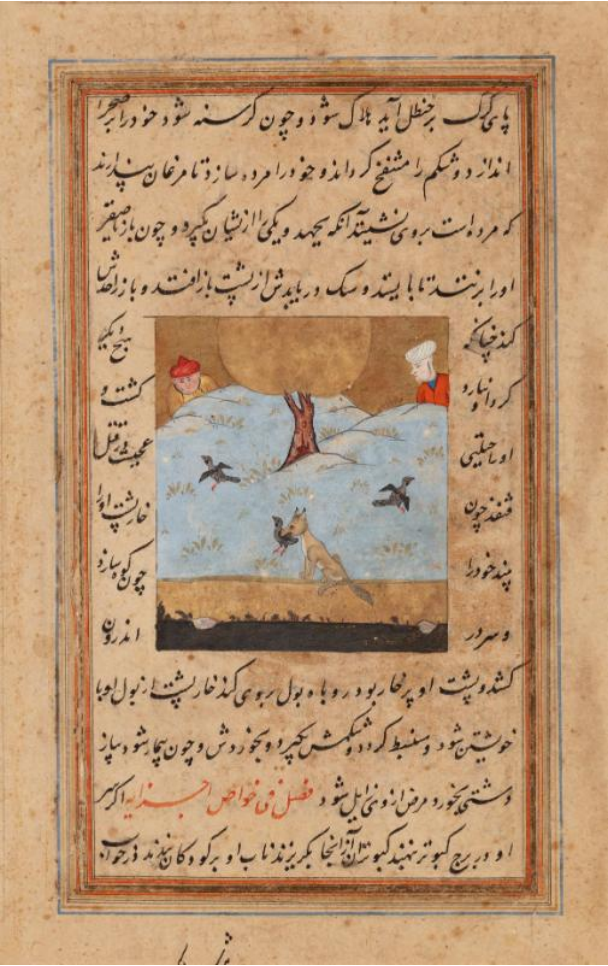 پای گرگ بر حنظل آید هلاک شود و چون گرسنه شود خود را بصحرا
اندازد و شکم را منتفخ کرداند و خود را مرده سازد تا مرغان پندارند
که مرده است بروی نشیند آنکه بجهد و یکی را از ایشان بگیرد و چون باز یا صقر
او را بزنند تا بایستد و سک در یابدش از پشت باز افتد و باز
کند چنانکه هیچ
کشت و
او را حیلتی عجیبست در قتل
قنفذ چون خارپشت او را
بیند خود را چون کوه سازد
و سر در اندرون
کشد و پشت او پر خار بود روباه بول بروی کند خارپشت از بول او با
خویشتن شود و منبسط کردد و شکمش بگیرد و بخوردش و چون بیمار شود پیاز
دشتی بخورد مرض از وی زایل شود فصل فی خواص اجزایه اکر سر
او در برج کبوتر نهند کبوتران از آنجا بگریزند ناب او بر کودکان بندند در خواب